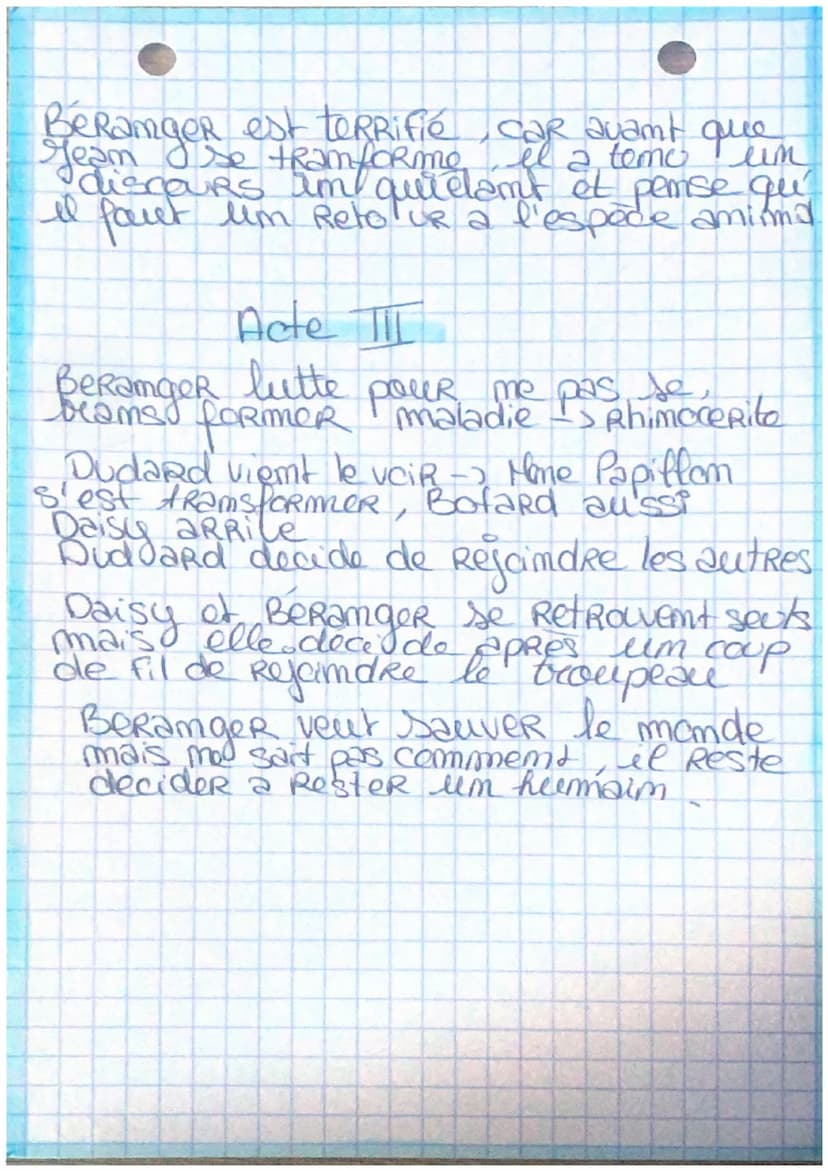 Béranger est terrifié, car avant que
Jean se tranforme, il a tenu un
discours inquiétant et pense qu'
il faut un retour a l'espèce animal
Acte III
Beranger lutte pour ne pas se
transformer maladie -> Rhinocerite
Dudard vient le voir -> Mme Papillon
s'est transformer, Botard aussi
Daisy arrive
Duddard decide de rejoindre les autres
Daisy et Béranger se retrouvent seuls
mais elle decide après un coup
de fil de rejoindre le troupeau
Beranger veut sauver le monde
mais sait pas comment, il reste
decider a rester un humain.